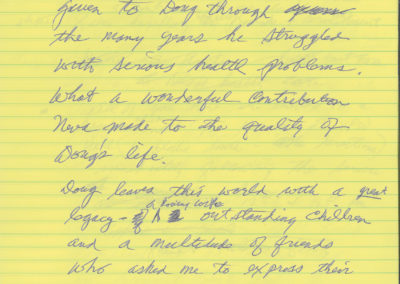 given to Doug through
the many years he struggled
with serious health problems.
What a wonderful contribution
Neva made to the quality of
Doug's life.
Doug leaves this world with a great
a loving wife
legacy - of outstanding children
and a multitude of friends
who asked me to express their